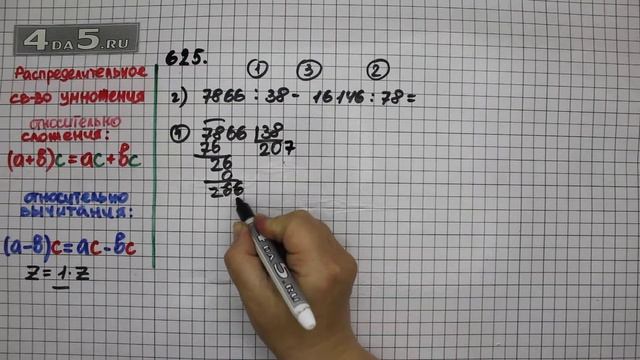 4DA5.RU
625.
Распределительное
св-во умножения
относительно
сложения:
(а+в)с=ас+вс
относительно
вычитания:
(а-в)с=ас-вс
z=1·z
① ③ ②
г) 7866:38-16146:78=
① 7866 |38
76 207
26
0
266
4DA5.RU